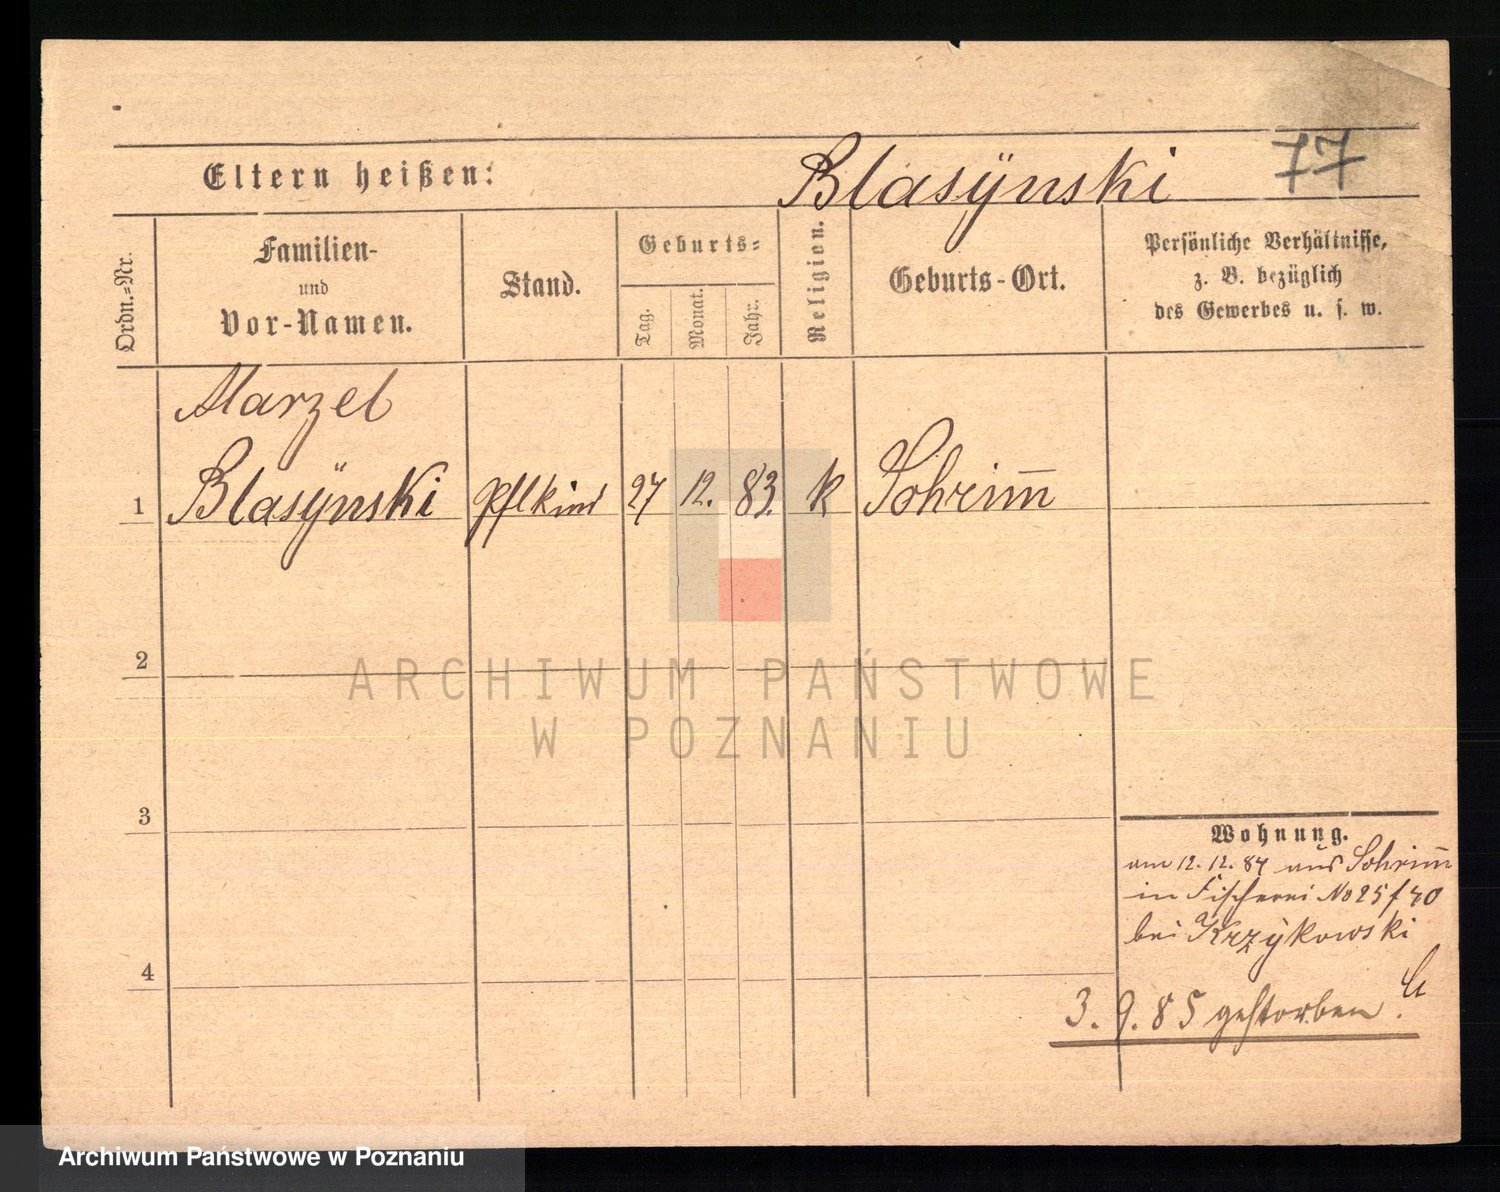 77
Eltern heißen: Blasÿnski
Ordn.=Nr.
Familien-
und
Vor-Namen.
Stand.
Geburts=
Tag.
Monat.
Jahr.
Religion.
Geburts-Ort.
Persönliche Verhältnisse,
z. B. bezüglich
des Gewerbes u. s. w.
Marzel
1 Blasÿnski Pflkind 27 12. 83. k Schrim̅
2
3
4
Wohnung.
am 12. 12. 84 aus Schrim̅
in Fischerei No 25 f 40
bei Krzÿkowski
3. 9. 85 gestorben.
ARCHIWUM PAŃSTWOWE
W POZNANIU
Archiwum Państwowe w Poznaniu